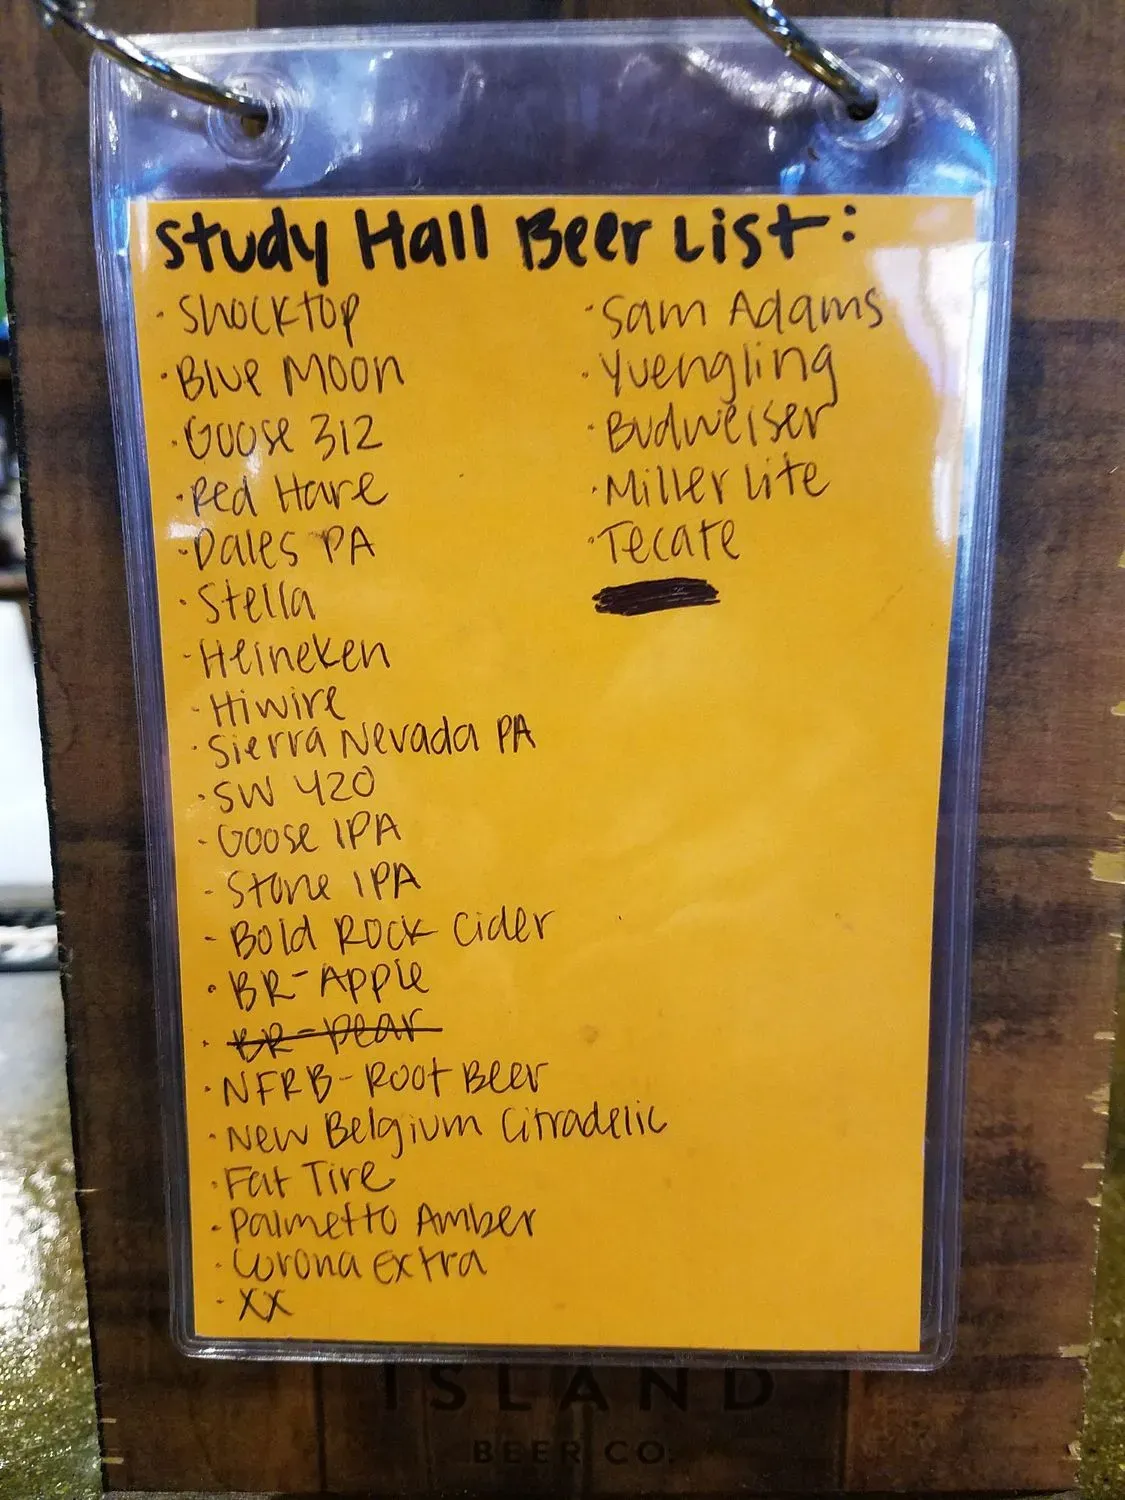 Study Hall Beer List:
· Shocktop
· Blue Moon
· Goose 312
· Red Hare
· Dales PA
· Stella
· Heineken
· Hiwire
· Sierra Nevada PA
· SW 420
· Goose IPA
· Stone IPA
· Bold Rock Cider
· BR-Apple
· BR-Pear
· NFRB-Root Beer
· New Belgium Citradelic
· Fat Tire
· Palmetto Amber
· Corona Extra
· XX
· Sam Adams
· Yuengling
· Budweiser
· Miller Lite
· Tecate
ISLAND
BEER CO.